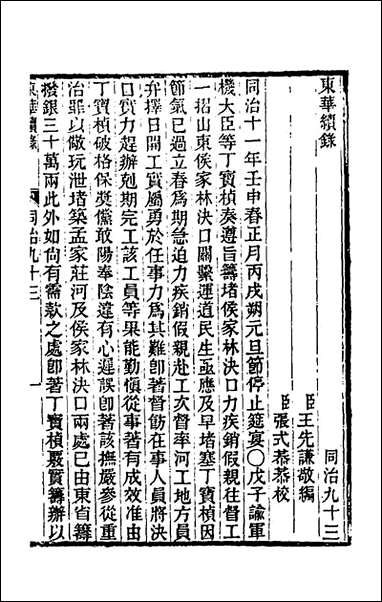 東華續錄
同治九十三
臣王先謙敬編
臣張式恭恭校
同治十一年壬申春正月丙戌朔元旦節停止筵宴○戊子諭軍
機大臣等丁寶楨奏遵旨籌堵侯家林決口力疾銷假親往督工
一摺山東侯家林決口關繫運道民生亟應及早堵塞丁寶楨因
節氣已過立春為期急迫力疾銷假親赴工次督率河工地方員
弁擇日開工實屬勇於任事力為其難卽著督飭在事人員將決
口實力趕辦剋期完工該工員等果能勤愼從事著有成效准由
丁寶楨破格保奬儻敢陽奉陰違有心遲誤卽著該撫嚴參從重
治罪以儆玩泄堵築孟家莊河及侯家林決口兩處已由東省籌
撥銀三十萬兩此外如尙有需款之處卽著丁寶楨覈實籌辦以
東華續錄
同治九十三
一